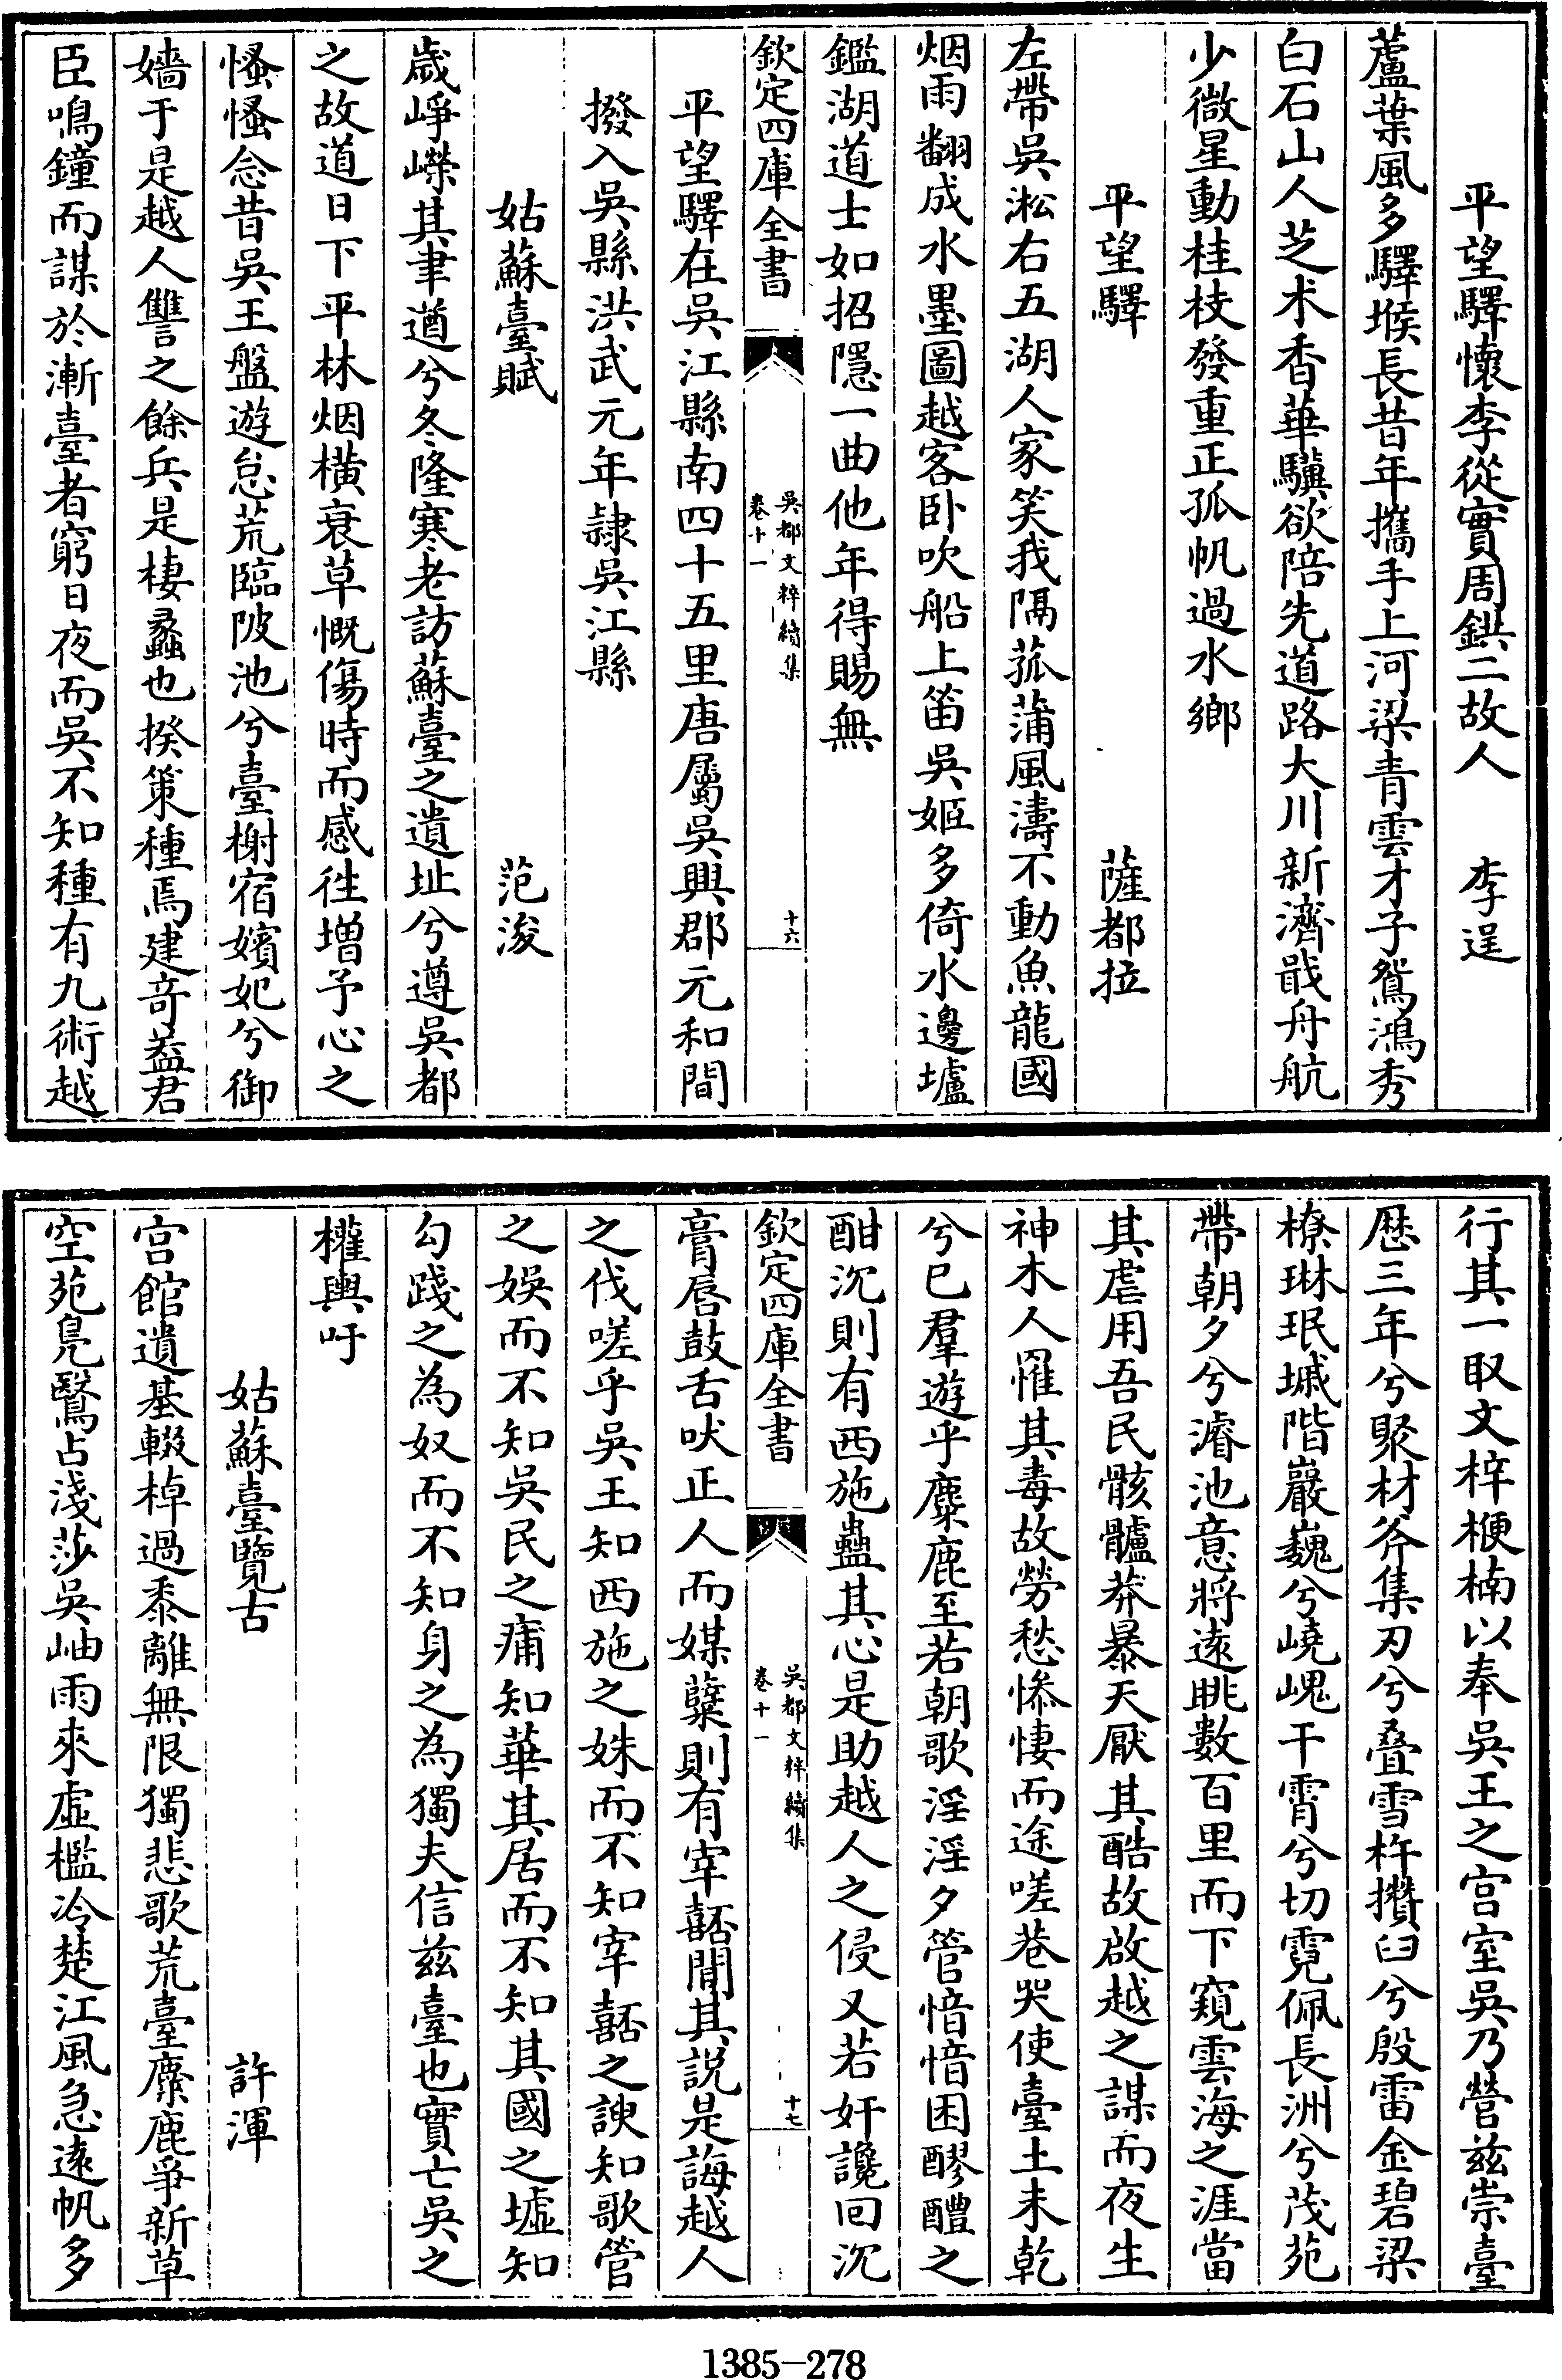 平望驛懷李從實周鉷二故人 李逞
蘆葉風多驛堠長昔年攜手上河梁青雲才子鴛鴻秀
白石山人芝术香華驥欲陪先道路大川新濟戢舟航
少微星動桂枝發重正孤帆過水鄉
平望驛 薩都拉
左帶吳淞右五湖人家笑我隔菰蒲風濤不動魚龍國
烟雨翻成水墨圖越客卧吹船上笛吳姬多倚水邊壚
鑑湖道士如招隱一曲他年得賜無
欽定四庫全書 吳都文粹續集 卷十一 十六
平望驛在吳江縣南四十五里唐屬吳興郡元和間
撥入吳縣洪武元年隷吳江縣
姑蘇臺賦 范浚
歲崢嶸其聿遒兮冬隆寒老訪蘇臺之遺址兮遵吳都
之故道日下平林烟橫衰草慨傷時而感徃増予心之
慅慅念昔吳王盤遊怠荒臨陂池兮臺榭宿嬪妃兮御
嬙于是越人讐之餘兵是棲蠡也揆策種焉建竒葢君
臣鳴鐘而謀於漸臺者窮日夜而吳不知種有九術越
行其一取文梓楩楠以奉吳王之宫室吳乃營兹崇臺
厯三年兮聚材斧集刃兮叠雪杵攢臼兮殷雷金碧梁
橑琳珉墄階巖巍兮嶢嵬干霄兮切霓佩長洲兮茂苑
帶朝夕兮濬池意將逺眺數百里而下窺雲海之涯當
其虐用吾民骸髗莽暴天厭其酷故啟越之謀而夜生
神木人罹其毒故勞愁慘悽而途嗟巷哭使臺土未乾
兮已羣遊乎麋鹿至若朝歌淫淫夕管愔愔困醪醴之
酣沉則有西施蠱其心是助越人之侵又若奸讒回沉
欽定四庫全書 吳都文粹續集 卷十一 十七
膏唇鼓舌吠正人而媒蘖則有宰嚭間其説是誨越人
之伐嗟乎吳王知西施之姝而不知宰嚭之諛知歌管
之娱而不知吳民之痡知華其居而不知其國之墟知
勾踐之為奴而不知身之為獨夫信兹臺也實亡吳之
權輿吁
姑蘇臺覽古 許渾
宫館遺基輟棹過黍離無限獨悲歌荒臺麋鹿爭新草
空苑鳬鷖占淺莎吳岫雨來虛檻冷楚江風急逺帆多
1385-278